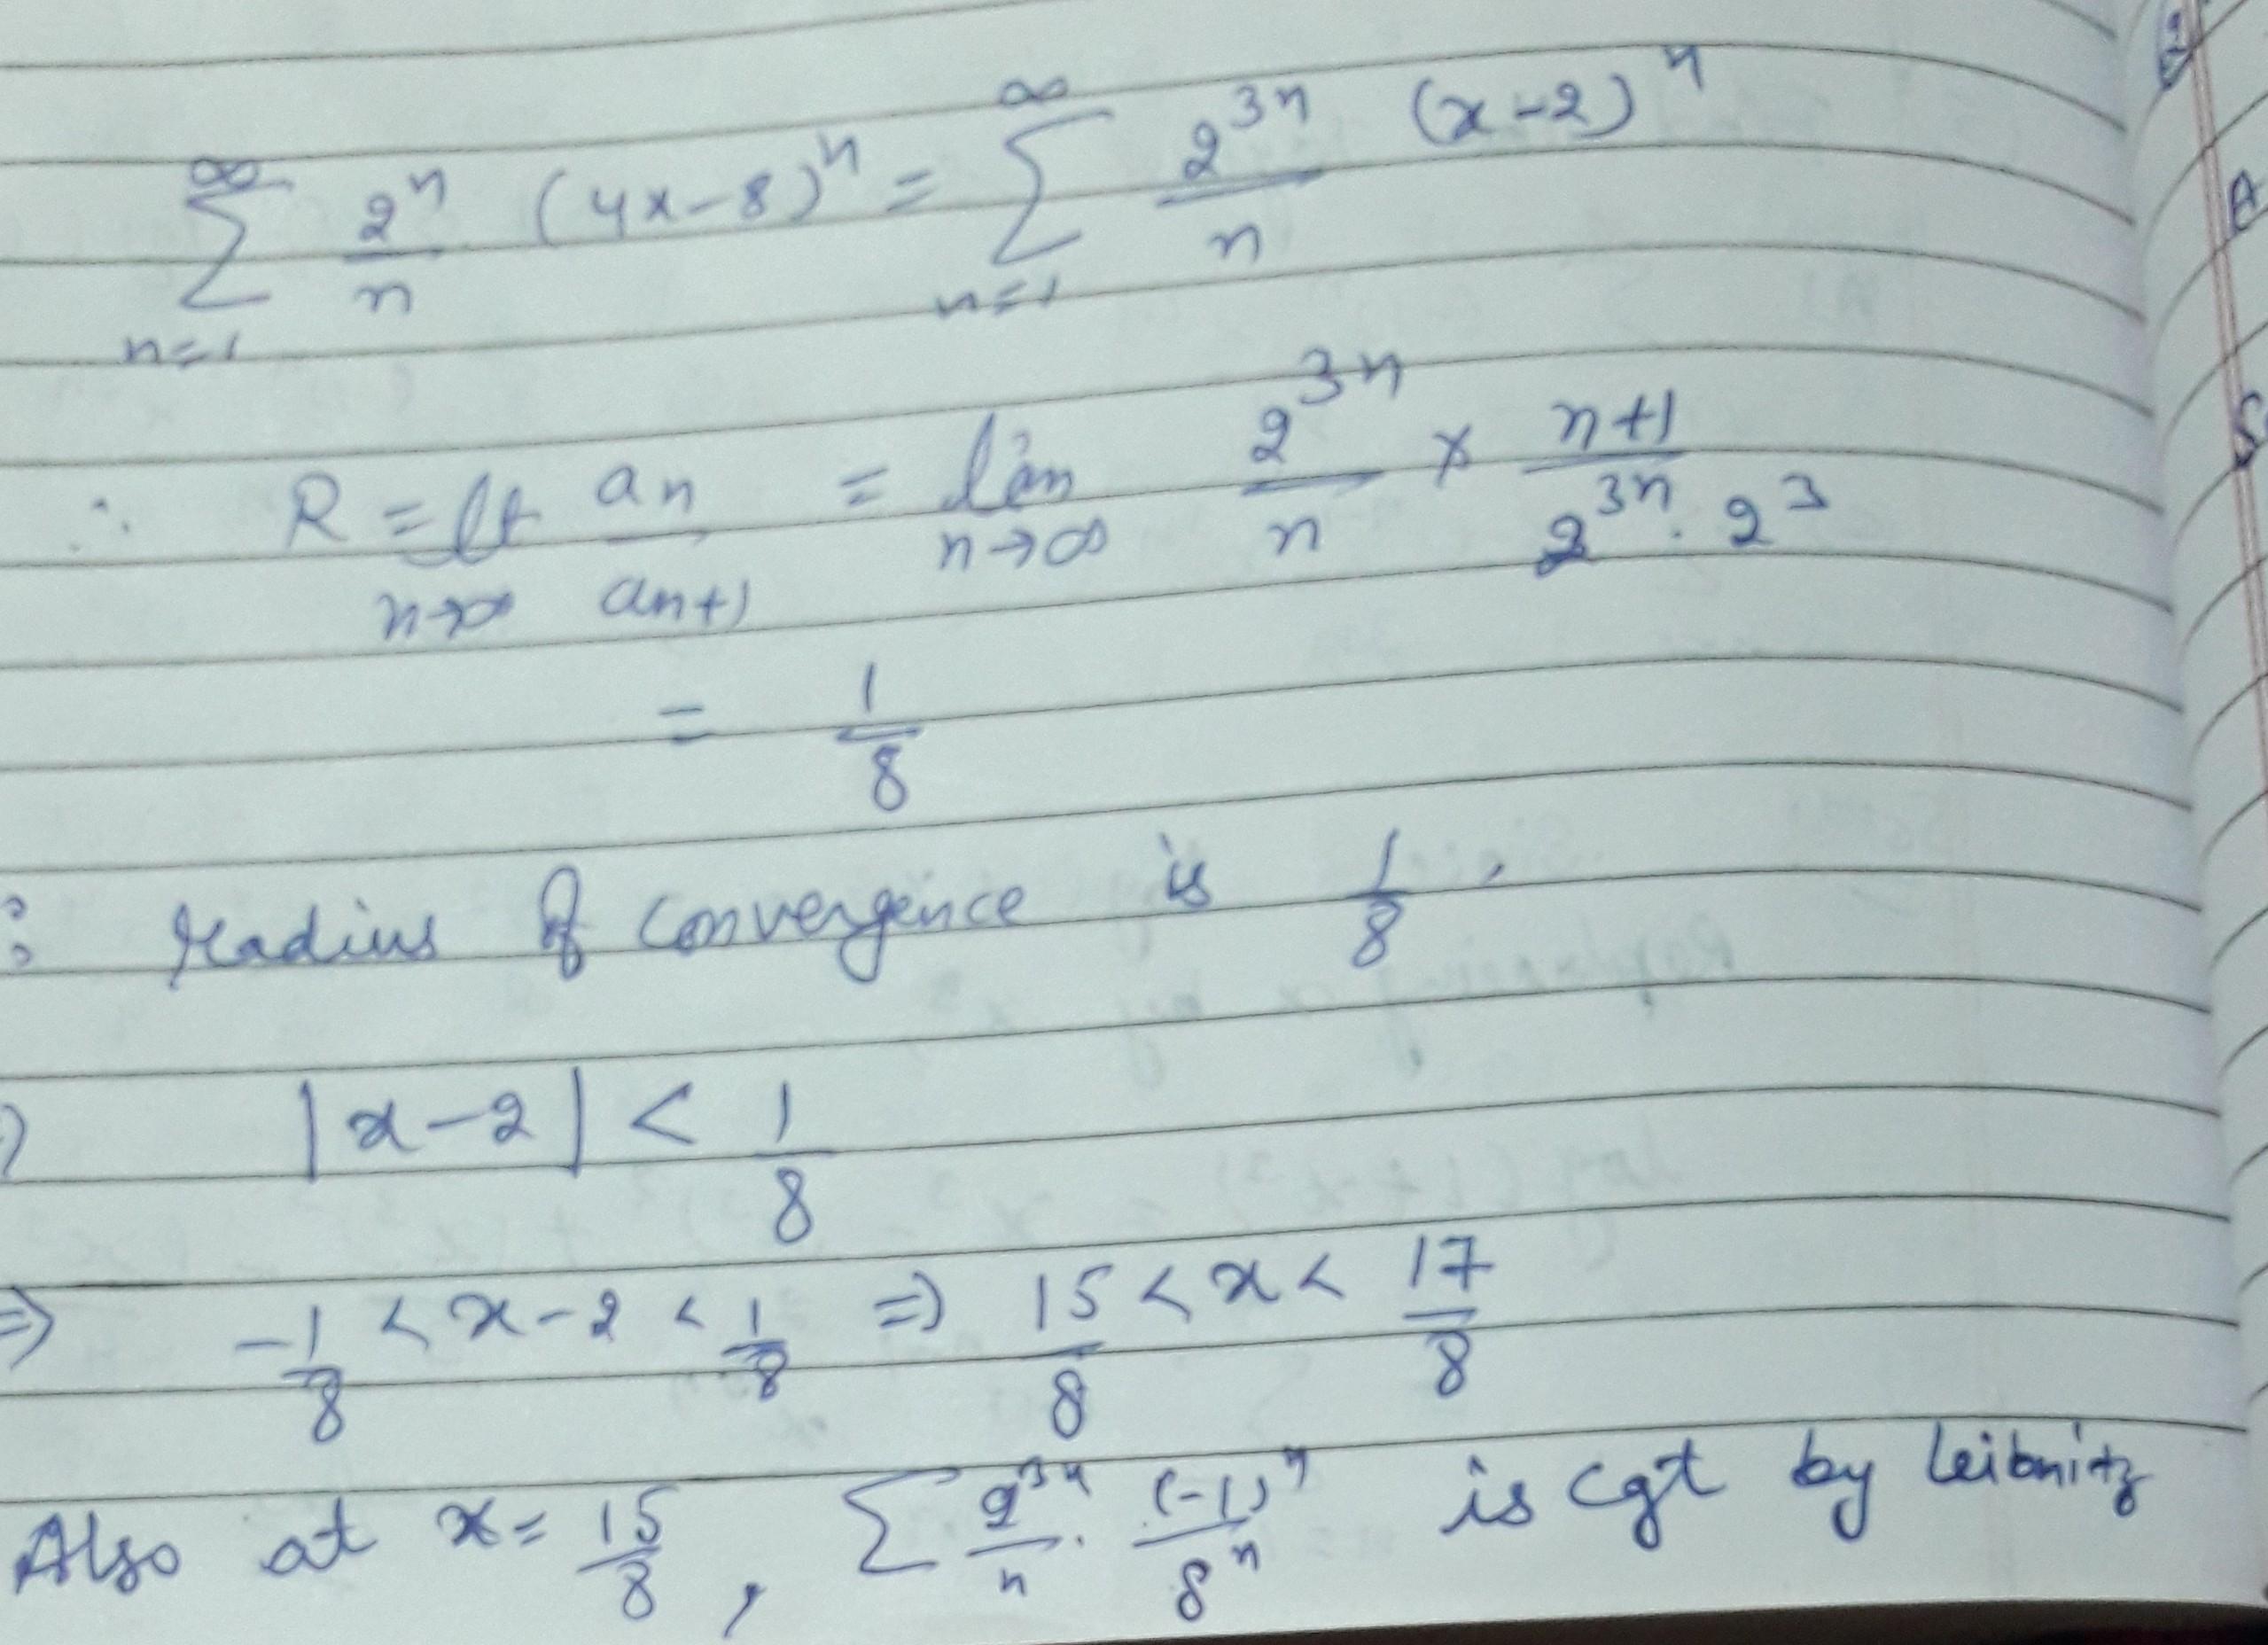 ∞ ∑ n=1 2^n/n (4x-8)^n = ∞ ∑ n=1 2^{3n}/n (x-2)^n
∴ R = lt n→∞ an/an+1 = lim n→∞ 2^{3n}/n × n+1/2^{3n}·2^3
= 1/8
∴ radius of convergence is 1/8.
⇒ |x-2| < 1/8
⇒ -1/8 < x-2 < 1/8 ⇒ 15/8 < x < 17/8
Also at x = 15/8, ∑ 2^{3n}/n · (-1)^n/8^n is cgt by leibnitz